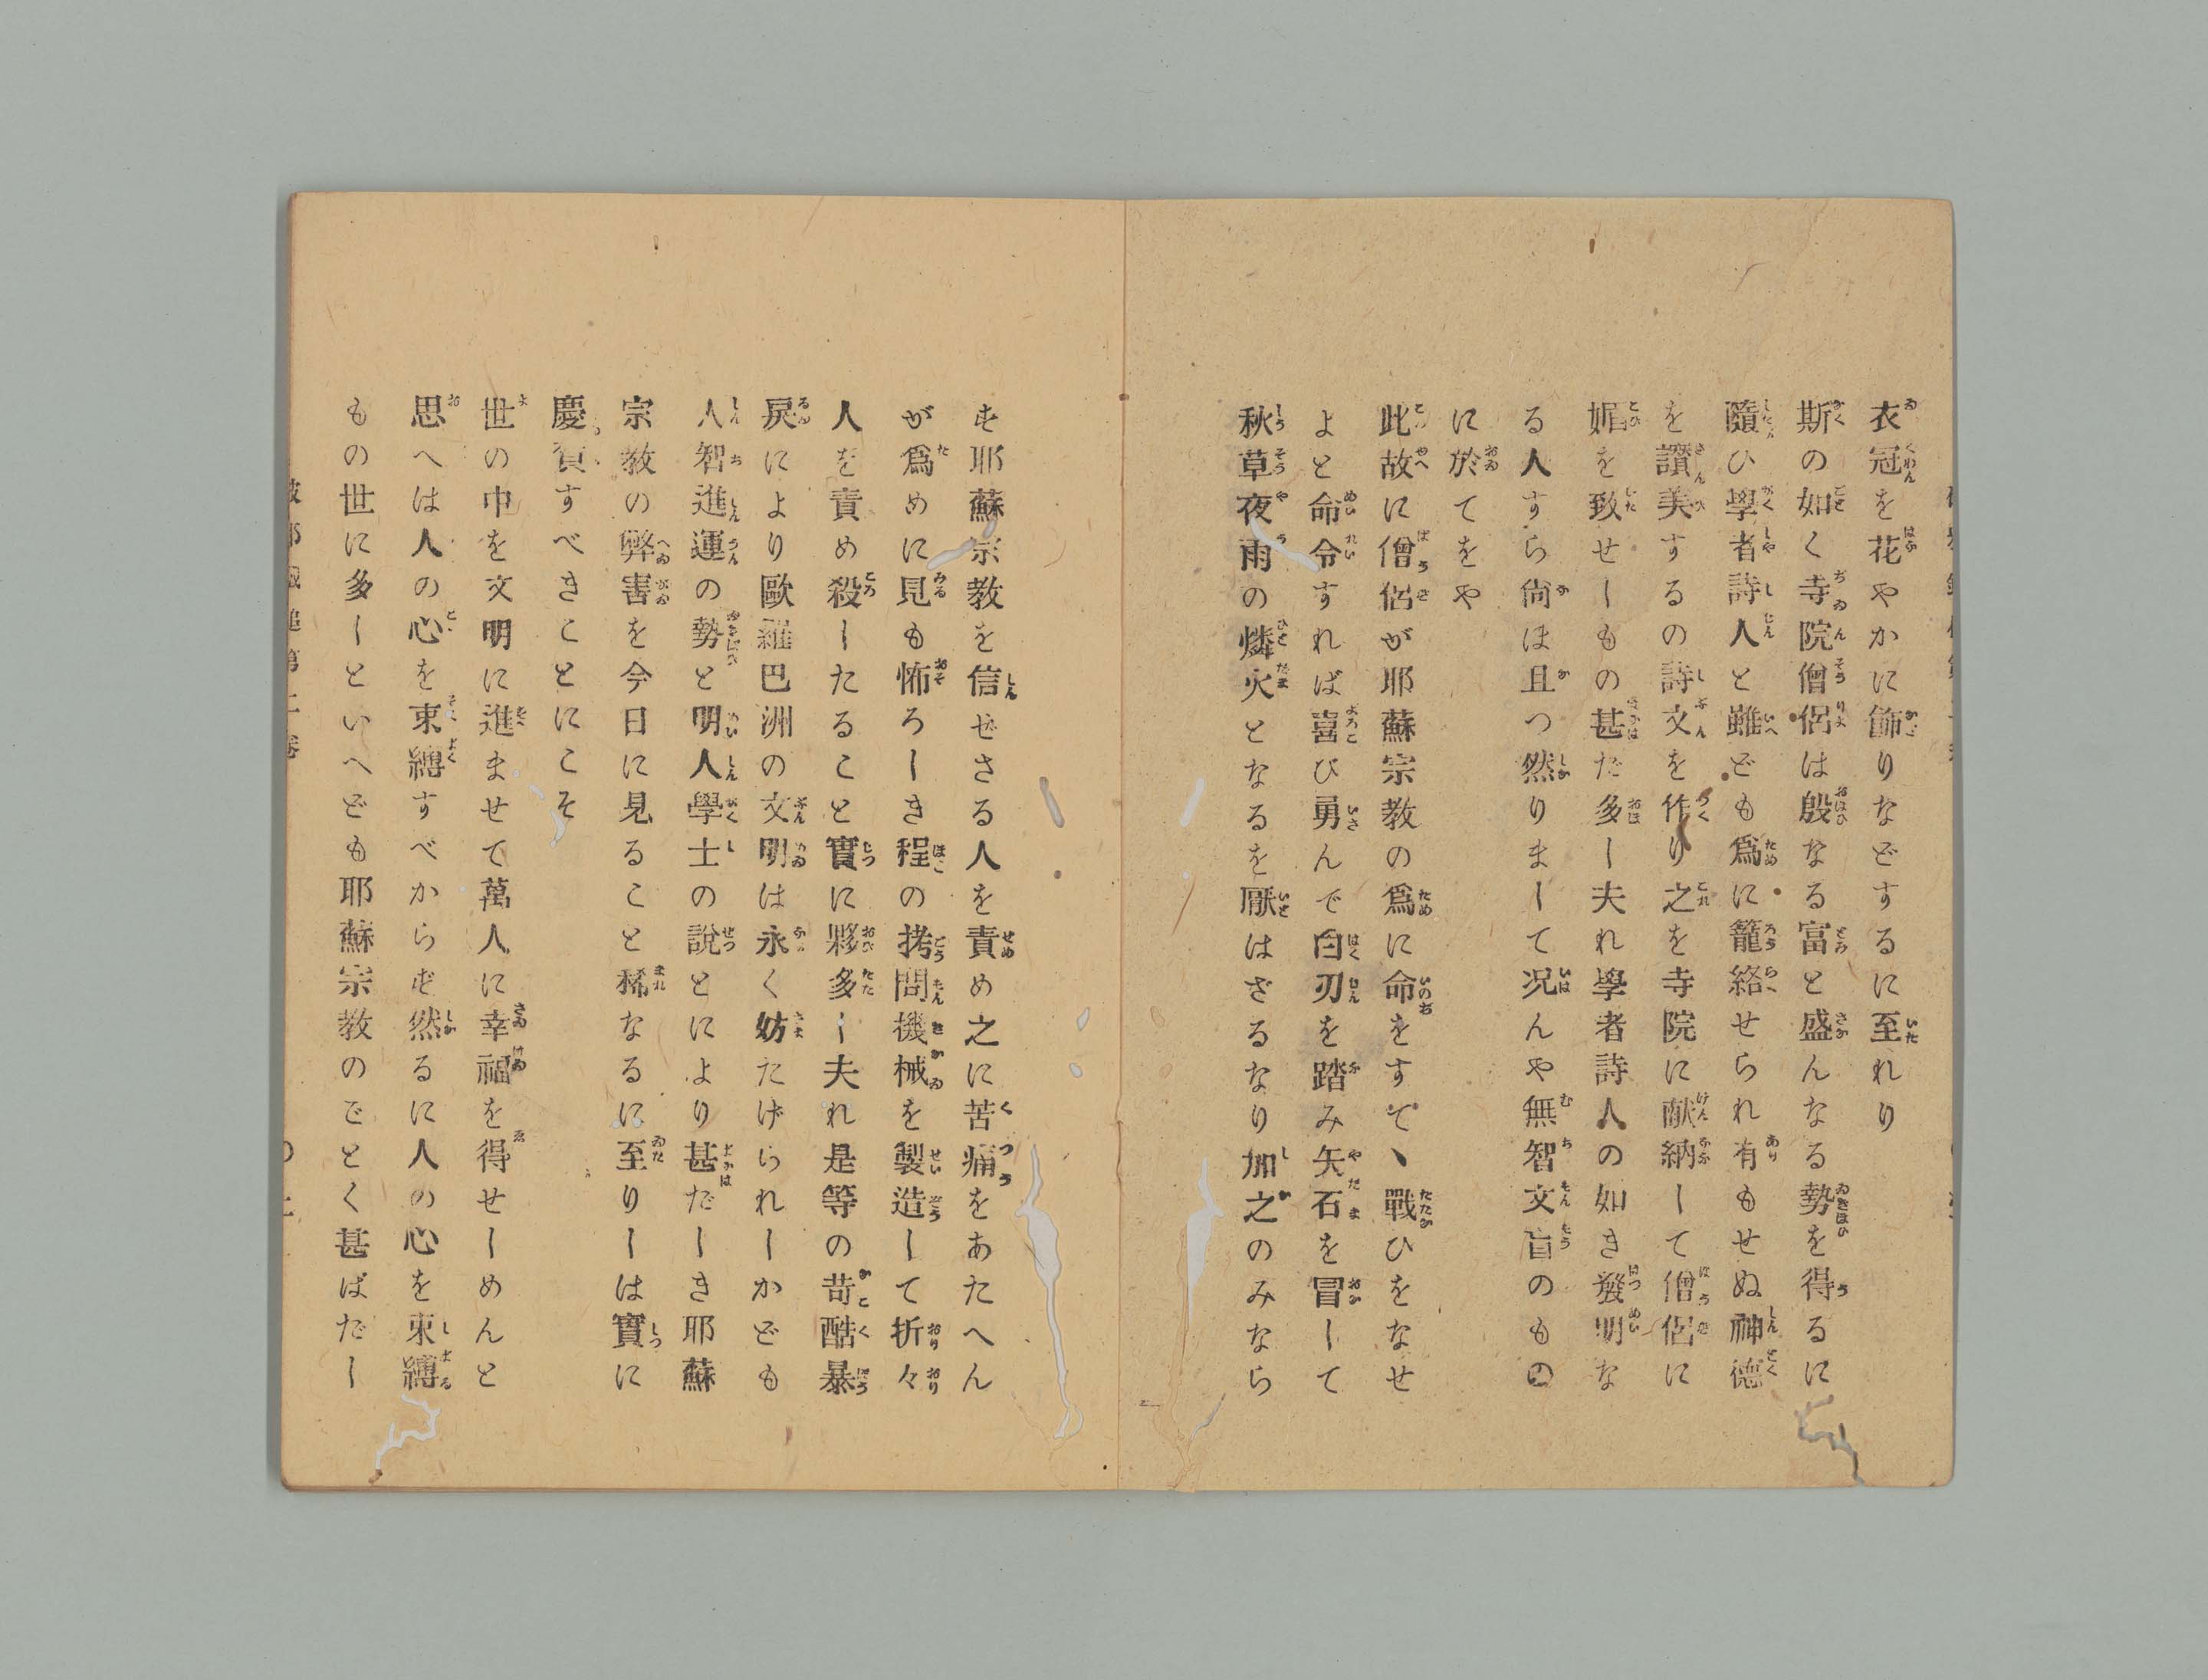 衣冠を花やかに飾りなどするに至れり
斯の如く寺院僧侶は殷なる富と盛んなる勢を得るに
隨ひ學者詩人と雖ども爲に籠絡せられ有もせぬ神德
を讃美するの詩文を作り之を寺院に献納して僧侶に
媚を致せしもの甚だ多し夫れ學者詩人の如き發明な
る人すら尙ほ且つ然りまして况んや無智文盲のもの
に於てをや
此故に僧侶が耶蘇宗教の爲に命をすてヽ戰ひをなせ
よと命令すれば喜び勇んで白刃を踏み矢石を冒して
秋草夜雨の燐火となるを厭はざるなり加之のみなら
ず耶蘇宗教を信ぜさる人を責め之に苦痛をあたへん
が爲めに見も怖ろしき程の拷問機械を製造して折々
人を責め殺したること實に夥多し夫れ是等の苛酷暴
戻により歐羅巴洲の文明は永く妨たげられしかども
人智進運の勢と明人學士の說とにより甚だしき耶蘇
宗教の弊害を今日に見ること稀なるに至りしは實に
慶賀すべきことにこそ
世の中を文明に進ませて萬人に幸福を得せしめんと
思へは人の心を束縛すべからず然るに人の心を束縛
もの世に多しといへども耶蘇宗教のごとく甚ばだし